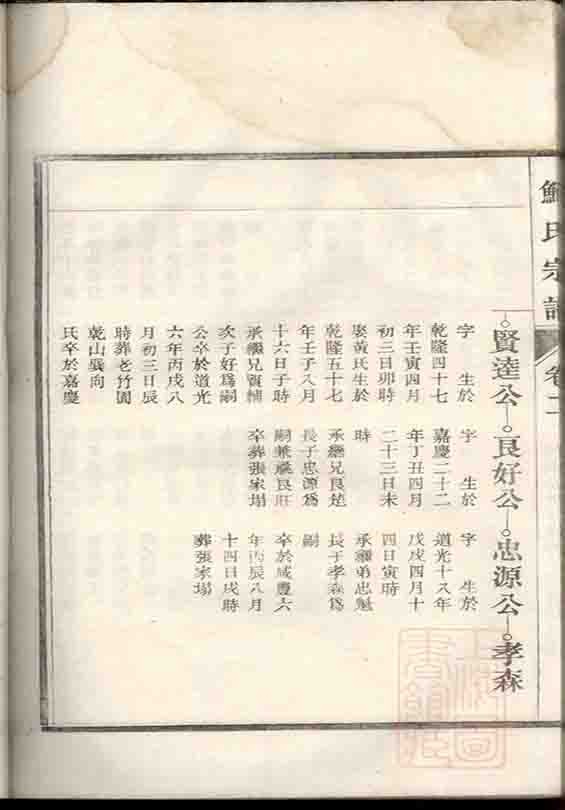 氏宗譜
卷二
賢達公 良好公 忠源公 孝森
字 生於
乾隆四十七
年壬寅四月
初三日卯時
娶黃氏生於
乾隆五十七
年壬子八月
十六日子時
承繼兄賢輔
次子好為嗣
公卒於道光
六年丙戌八
月初三日辰
時葬老竹園
乾山巽向
氏卒於嘉慶
字 生於
嘉慶二十二
年丁丑四月
二十三日未
時
承繼兄良楚
長子忠源為
嗣兼祧良旺
卒葬張家塲
字 生於
道光十八年
戊戌四月十
四日寅時
承繼弟忠魁
長子孝森為
嗣
卒於咸豐六
年丙辰八月
十四日戌時
葬張家塲
上海圖
書館藏